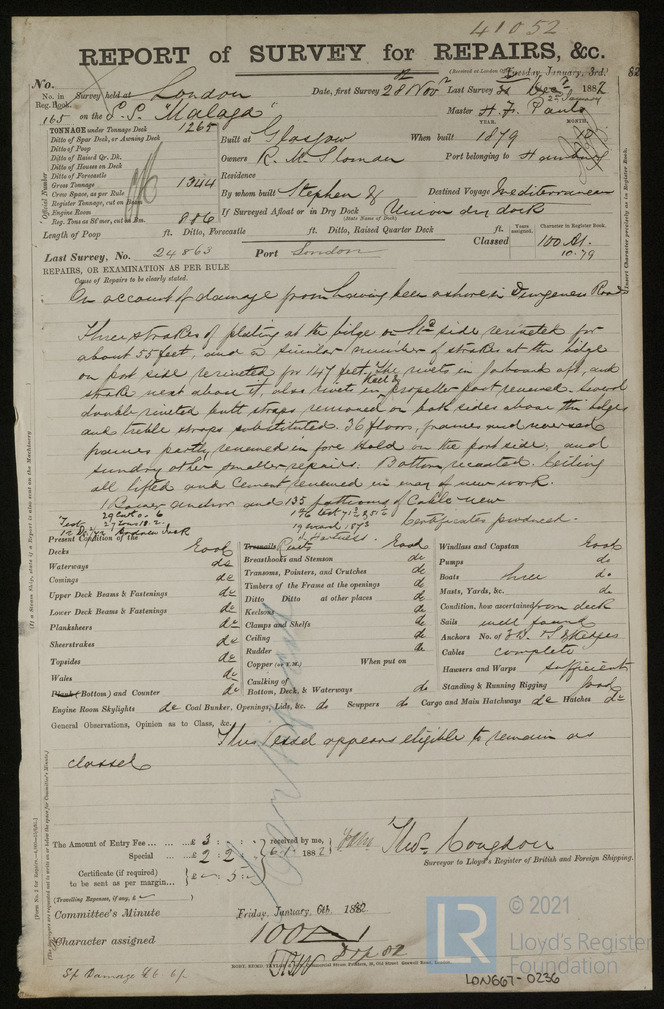 41052
REPORT of SURVEY for REPAIRS, &c.
(Received at London Office Tuesday, January, 3rd. 82
No.
No. in Survey held at London Date, first Survey 28 Nov Last Survey 1882
Reg. Book.
165 on the S.S. "Malaga" Master
TONNAGE under Tonnage Deck 1265
Ditto of Spar Deck, or Awning Deck
Ditto of Poop
Ditto of Raised Qr. Dk.
Ditto of Houses on Deck
Ditto of Forecastle
Gross Tonnage 1344
Crew Space, as per Rule
Register Tonnage, cut on Beam
Engine Room
Reg. Tons as Sl'mer, cut on Bm. 886
YEAR. MONTH.
Built at Glasgow When built 1879 10
Owners R. M. Sloman Port belonging to Hamburg
Residence
By whom built Stephen & Destined Voyage Mediterranean
If Surveyed Afloat or in Dry Dock Union dry dock
(State Name of Dock)
Length of Poop ft. Ditto, Forecastle ft. Ditto, Raised Quarter Deck ft.
Years assigned. Character in Register Book.
Last Survey, No. 24863 Port London Classed 100 A1.
10.79
REPAIRS, OR EXAMINATION AS PER RULE
Cause of Repairs to be clearly stated.
On account of damage from having been ashore in Dungeness Roads
Three strakes of plating at the bilge on Stbd side reriveted for
about 55 feet, and a similar number of strakes at the bilge
on port side reriveted for 47 feet, The rivets in garboard aft, and
strake next above it, also rivets in heel of propeller post renewed. Several
double riveted butt straps removed on both sides above the bilges
and treble straps substituted. 36 floors, frames and reversed
frames partly renewed in fore Hold on the port side, and
sundry other smaller repairs. Bottom recoated. Ceiling
all lifted and Cement renewed in way of new work.
1 Bower anchor and 135 fathoms of Cable new
Certificates produced.
Present Condition of the
Decks Good
Waterways do
Comings do
Upper Deck Beams & Fastenings do
Lower Deck Beams & Fastenings do
Planksheers do
Sheerstrakes do
Topsides do
Wales do
Plank (Bottom) and Counter do
Treenails Rivets Good
Breasthooks and Stemson do
Transoms, Pointers, and Crutches do
Timbers of the Frame at the openings do
Ditto Ditto at other places do
Keelsons do
Clamps and Shelfs do
Ceiling do
Rudder do
Copper (or Y.M.) When put on
Caulking of
Bottom, Deck, & Waterways do
Windlass and Capstan Good
Pumps do
Boats three do
Masts, Yards, &c. do
Condition, how ascertained from deck
Sails well found
Anchors No. of 3 B. 1 S. 2 Kedges
Cables complete
Hawsers and Warps sufficient
Standing & Running Rigging good
Engine Room Skylights do Coal Bunker, Openings, Lids, &c. do Scuppers do Cargo and Main Hatchways do Hatches do
General Observations, Opinion as to Class, &c.
This Vessel appears eligible to remain as
classed
The Amount of Entry Fee £ 3 : : received by me,
Special £ 2 : 2 : 6.1. 1882
Certificate (if required) to be sent as per margin £ : 5 :
(Travelling Expenses, if any, £
Thos. Congdon
Surveyor to Lloyd's Register of British and Foreign Shipping.
Committee's Minute Friday, January, 6th. 1882.
Character assigned 100 A 1
© 2021
Lloyd's Register
Foundation
LR
LDN667-0236